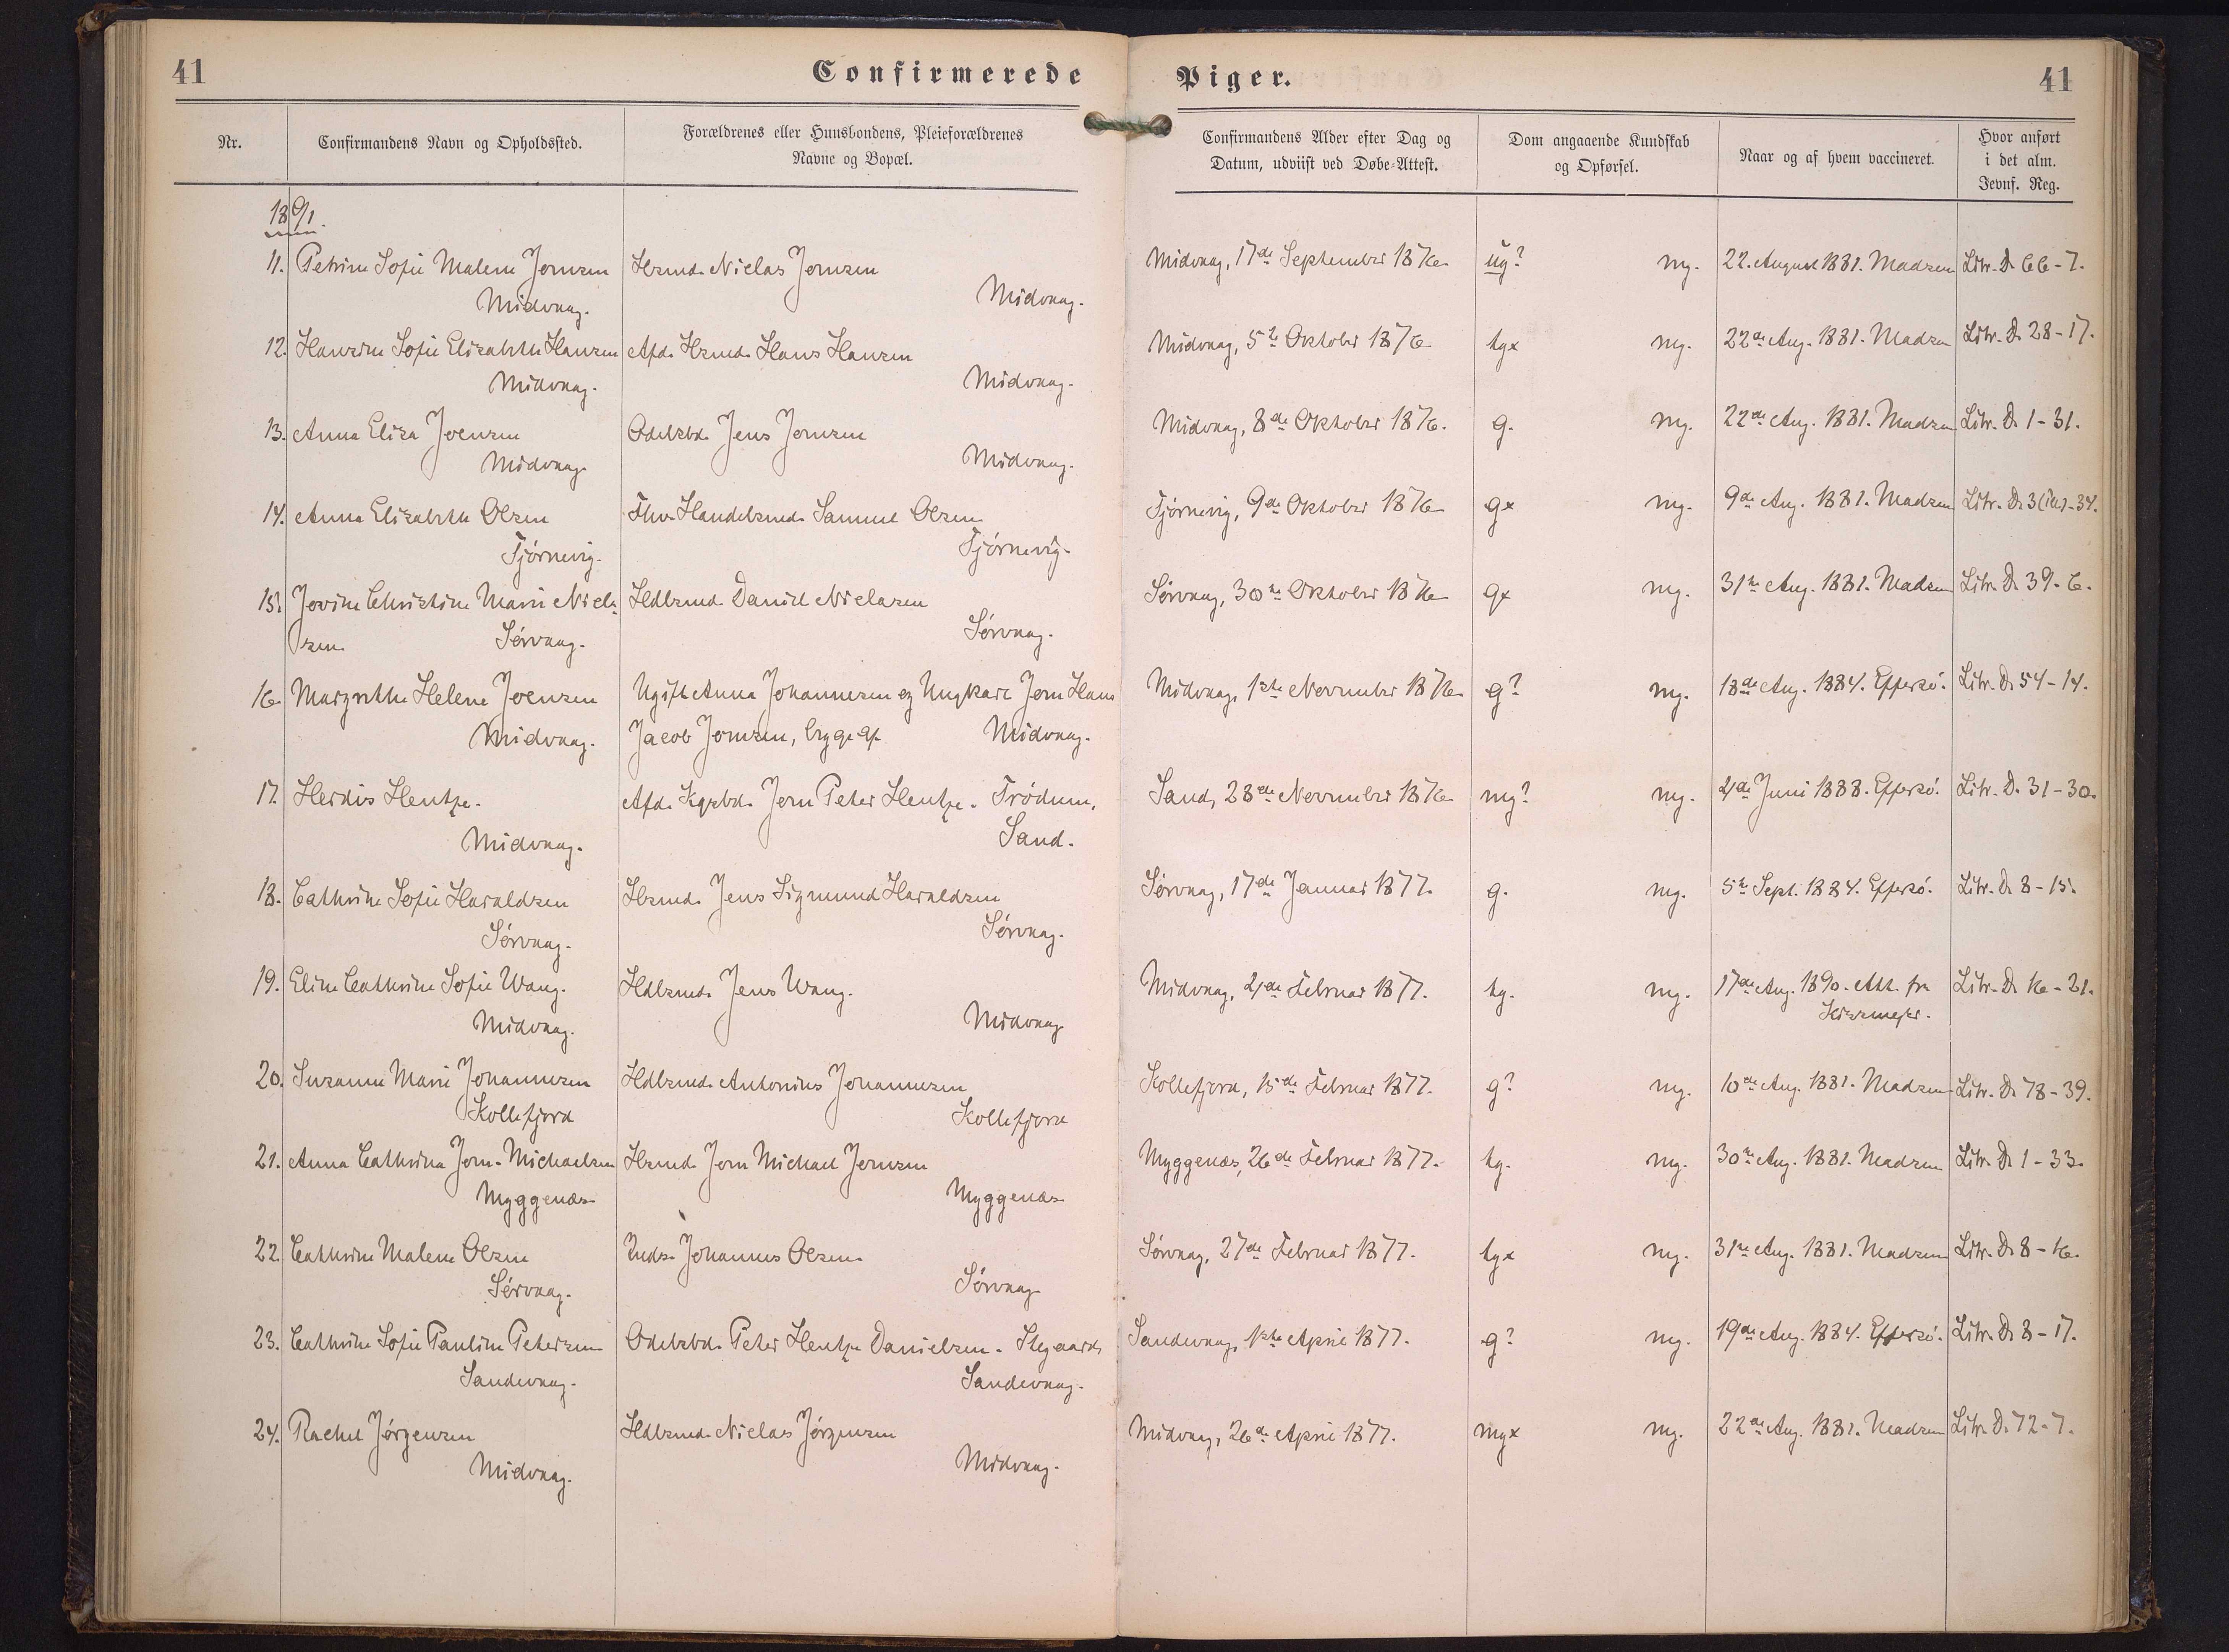 41
Confirmerede
Piger.
41
Nr.
Confirmandens Navn og Opholdssted.
Forældrenes eller Huusbondens, Pleieforældrenes
Navne og Bopæl.
Confirmandens Alder efter Dag og
Datum, udviist ved Døbe-Attest.
Dom angaaende Kundskab
og Opførsel.
Naar og af hvem vaccineret.
Hvor anført
i det alm.
Jevnf. Reg.
1891.
11. Petrine Sofie Malene Joensen Hsmd. Niclas Joensen Midvaag, 17de September 1876 ug? mg. 22. August 1881. Madsen Litr. D. 66-7.
Midvaag. Midvaag.
12. Hansine Sofie Elisabeth Hansen Afd. Hsmd. Hans Hansen Midvaag, 5te Oktober 1876 tgx mg. 22de Aug. 1881. Madsen Litr. D. 28-17.
Midvaag. Midvaag.
13. Anna Elisa Joensen Odelsbd. Jens Joensen Midvaag, 8de Oktober 1876. g. mg. 22de Aug. 1881. Madsen Litr. D. 1-31.
Midvaag Midvaag.
14. Anna Elisabeth Olsen Fhv. Handelsmd. Samuel Olsen Tjørnevig, 9de Oktober 1876 gx mg. 9de Aug. 1881. Madsen Litr. D. 3 -34.
Tjørnevig. Tjørnevig.
15. Jovine Christine Marie Niel- Hdlsmd. Daniel Nielsen Sørvaag, 30te Oktober 1876 gx mg. 31te Aug. 1881. Madsen Litr. D. 39-6.
sen Sørvaag. Sørvaag.
16. Margrethe Helene Joensen Ugift Anna Johannesen og Ungkarl Joen Hans Midvaag, 1ste November 1876 g? mg. 18de Aug. 1884. Effersø. Litr. D. 54-14.
Midvaag. Jacob Joensen, begge af Midvaag.
17. Herdis Hentze. Afd. Kgsbd. Joen Peter Hentze. Trödum, Sand, 28de November 1876 mg? mg. 4de Juni 1888. Effersø. Litr. D. 31-30.
Midvaag. Sand.
18. Cathrine Sofie Haraldsen Hsmd. Jens Sigmund Haraldsen Sørvaag, 17de Januar 1877. g. mg. 5te Sept. 1884. Effersø. Litr. D. 8-15.
Sørvaag. Sørvaag.
19. Eline Cathrine Sofie Wang. Hdlsmd. Jens Wang. Midvaag, 4de Februar 1877. tg. mg. 17de Aug. 1890. Att. fra Litr. D. 16-21.
Midvaag. Midvaag
20. Susanne Marie Johannesen Hdlsmd. Antonius Johannesen Kollefjord, 15de Februar 1877. g? mg. 10de Aug. 1881. Madsen Litr. D. 78-39.
Kollefjord Kollefjord
21. Anna Cathrina Joen-Michaelsen Hsmd. Joen Michael Joensen Myggenæs, 26de Februar 1877. tg. mg. 30te Aug. 1881. Madsen Litr. D. 1-33.
Myggenæs Myggenæs
22. Cathrine Malene Olsen Inds. Johannes Olsen Sørvaag, 27de Februar 1877. tgx mg. 31te Aug. 1881. Madsen Litr. D. 8-16.
Sørvaag. Sørvaag
23. Cathrine Sofie Pauline Petersen Odelsbd. Peter Hentze Danielsen. Stegaard, Sandevaag, 1ste April 1877. g? mg. 19de Aug. 1884. Effersø. Litr. D. 8-17.
Sandevaag. Sandevaag.
24. Rachel Jørgensen Hdlsmd. Niclas Jørgensen Midvaag, 26de April 1877. mgx mg. 22de Aug. 1881. Madsen Litr. D. 72-7.
Midvaag. Midvaag.